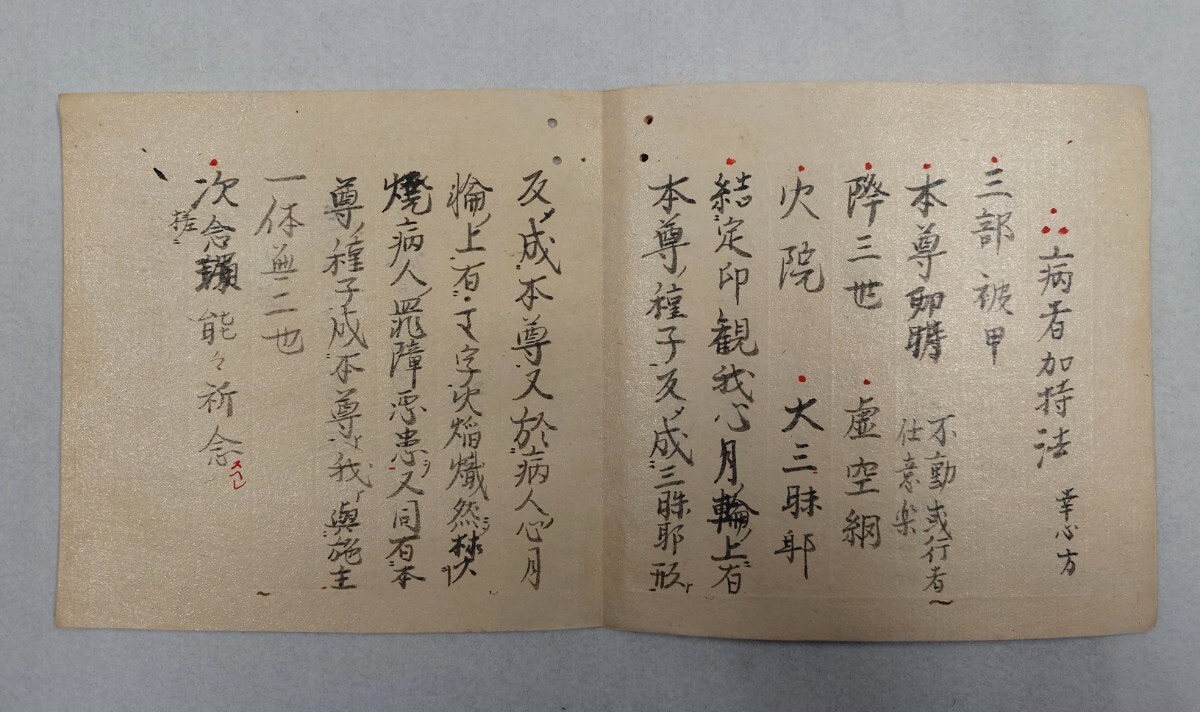 病者加持法　幸心方
三部被甲
本尊印明　不動或行者
仕意楽
降三世　虚空網
火院　大三昧耶
結定印観我心月輪上有
本尊種子反成三昧耶形
反成本尊又於病人心月
輪上有
字火焔熾然焚
燒病人罪障悪患又同有本
尊種子成本尊我與施主
一体無二也
次念
能々祈念